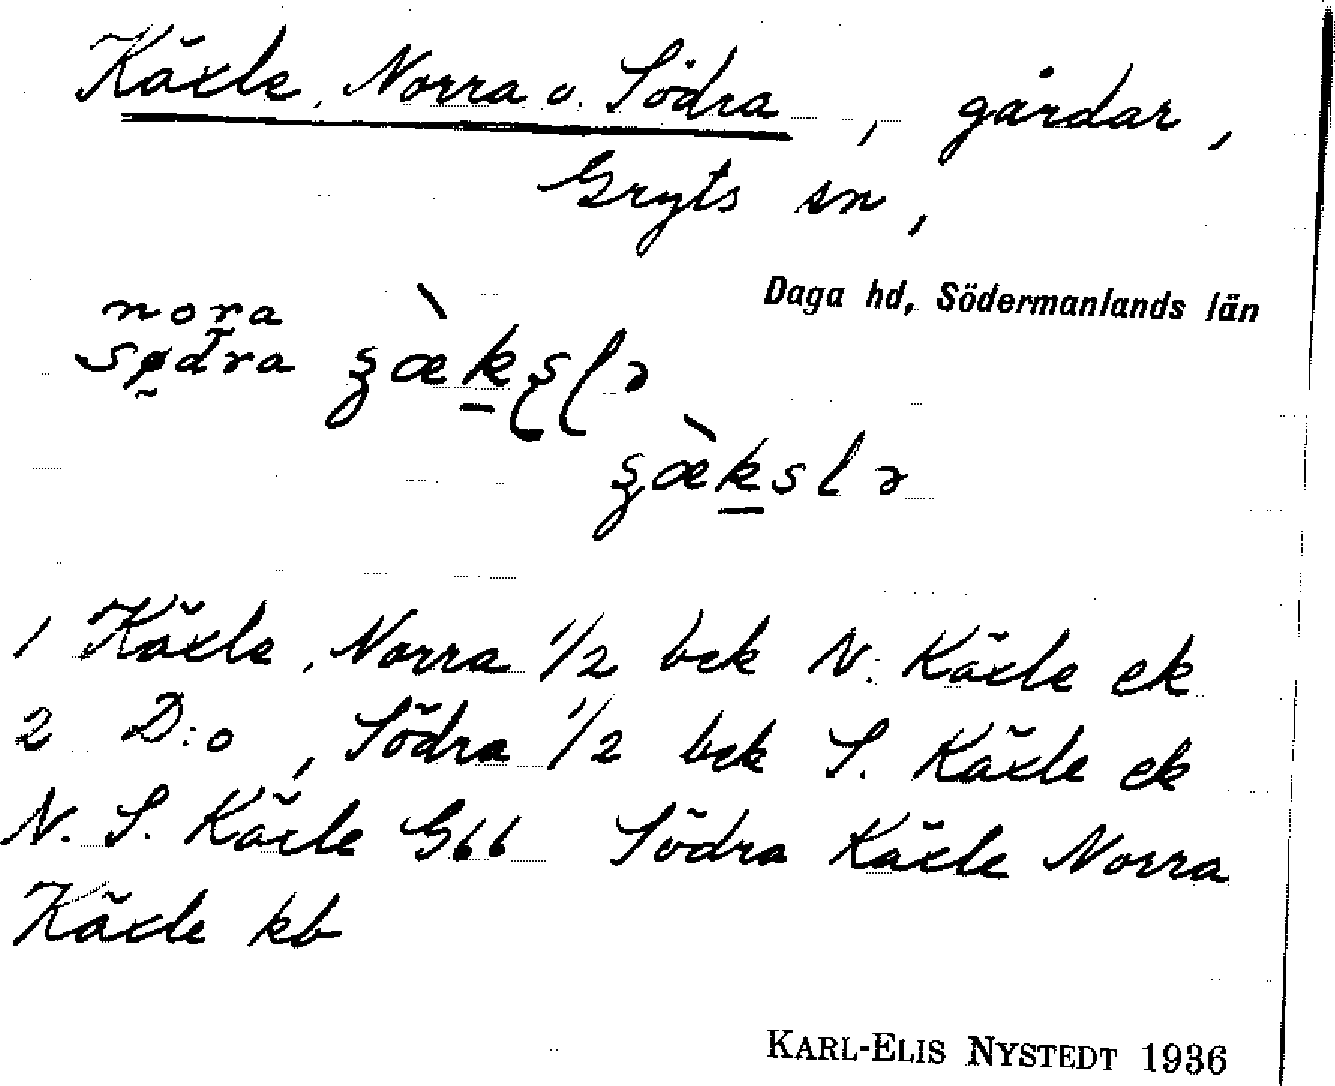 Käxle, Norra o. Södra, gårdar,
Gryts sn,
Daga hd, Södermanlands län
nora
södra
1 Käxle, Norra 1/2 bek N. Käxle ek
2 D:o, Södra 1/2 bek S. Käxle ek
N. S. Käxle G66 Södra Käxle Norra
Käxle kb
KARL-ELIS NYSTEDT 1936